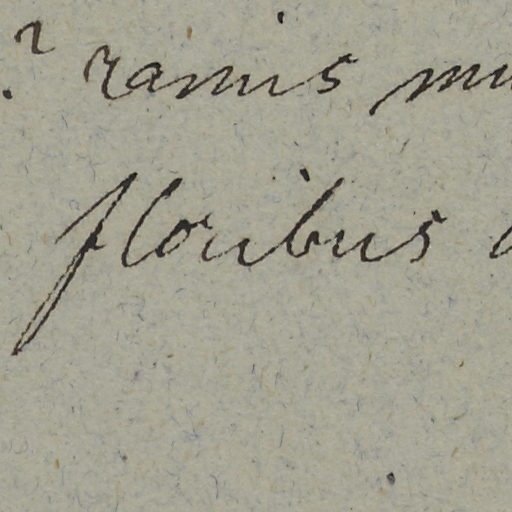 ? ramis mu
floribus